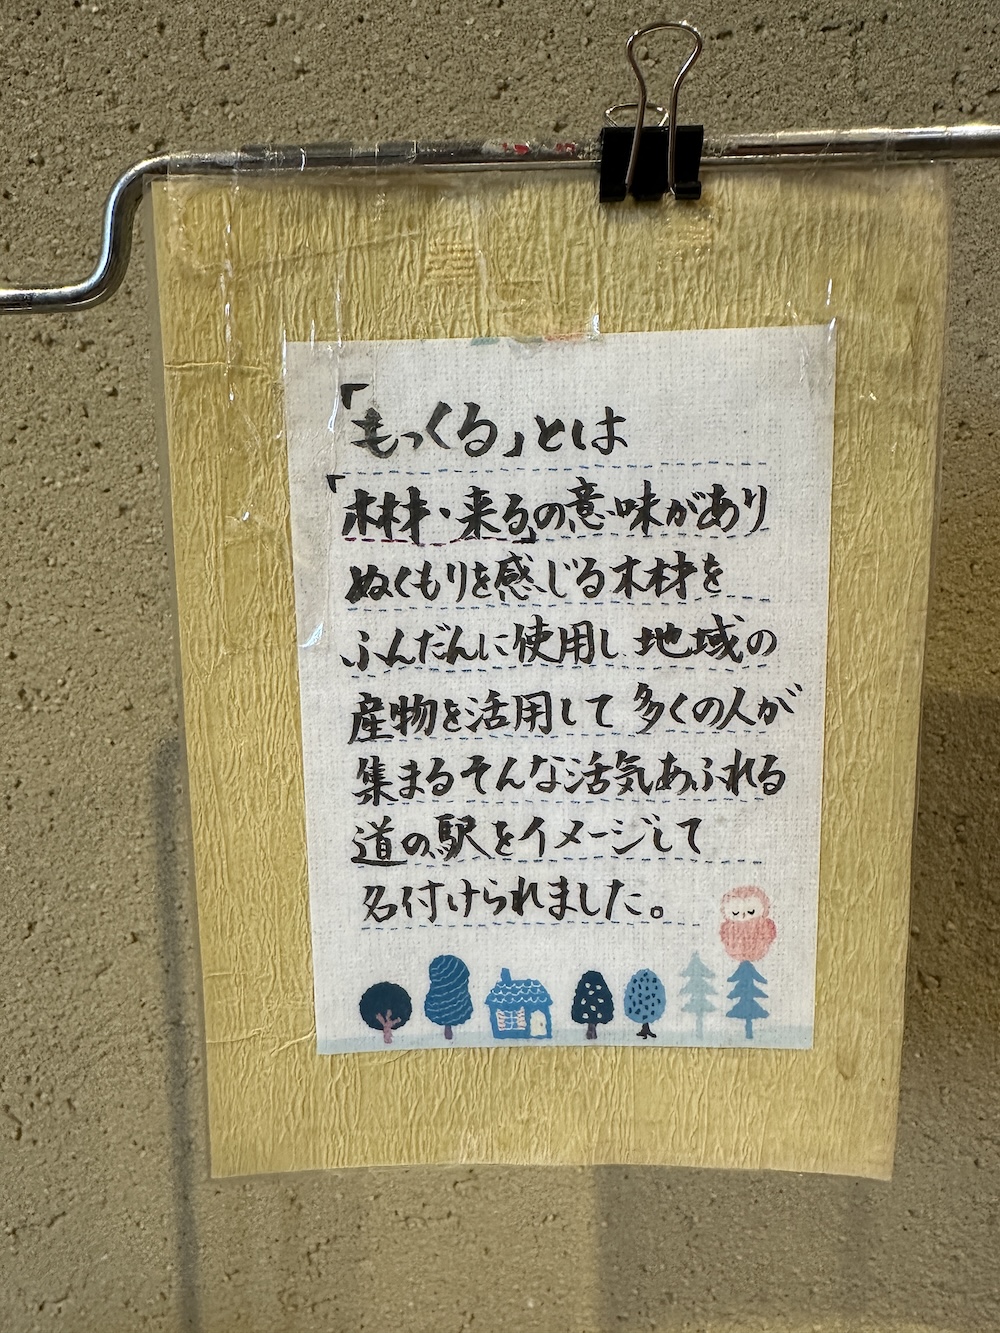 「もっくる」とは
「木材・来る」の意味があり
ぬくもりを感じる木材を
ふんだんに使用し地域の
産物を活用して多くの人が
集まるそんな活気あふれる
道の駅をイメージして
名付けられました。